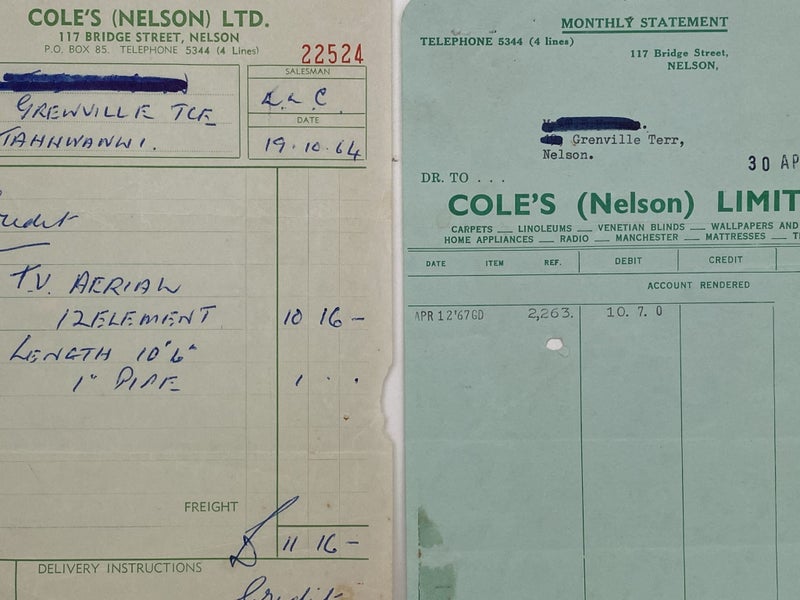 COLE'S (NELSON) LTD.
117 BRIDGE STREET, NELSON
P.O. BOX 85. TELEPHONE 5344 (4 Lines)
22524
SALESMAN
DATE
GRENVILLE TCE
TAHNWANWI.
19.10.64
Credit
T.V. AERIAL
12 ELEMENT 10 16 -
LENGTH 10'6"
1" PIPE 1 . .
FREIGHT
11 16 -
DELIVERY INSTRUCTIONS
Credit
MONTHLY STATEMENT
TELEPHONE 5344 (4 lines)
117 Bridge Street,
NELSON,
Grenville Terr,
Nelson.
30 AP
DR. TO . . .
COLE'S (Nelson) LIMIT
CARPETS — LINOLEUMS — VENETIAN BLINDS — WALLPAPERS AND
HOME APPLIANCES — RADIO — MANCHESTER — MATTRESSES — T
DATE ITEM REF. DEBIT CREDIT
ACCOUNT RENDERED
APR 12'67GD 2,263. 10. 7. 0